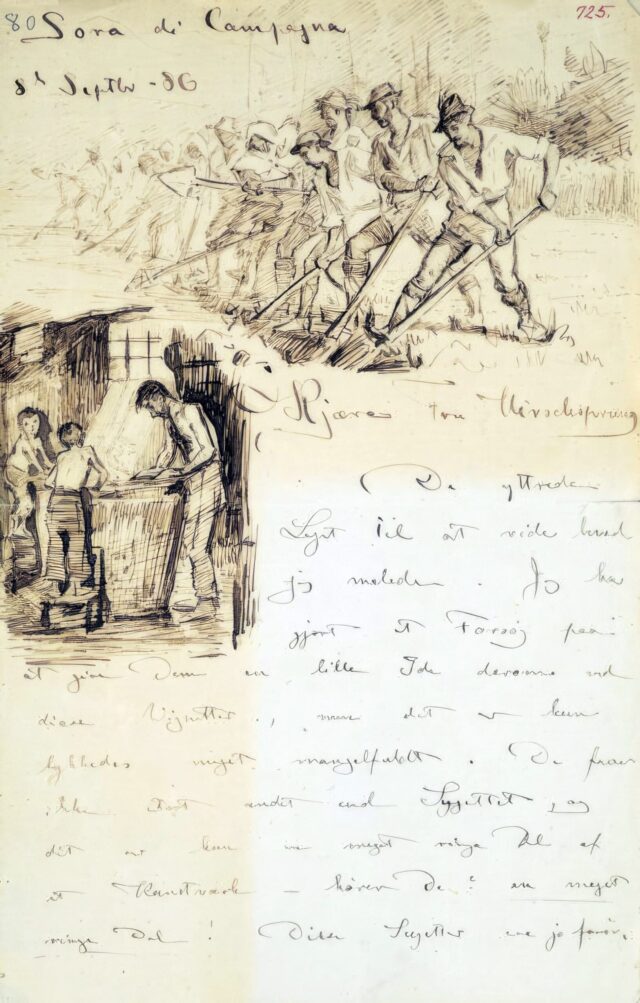 80
725.
Sora di Campagna
8d Septbr - 86
Kjære Fru Hirschsprung
De yttrede
Lyst til at vide hvad
jeg malede. Jeg har
gjort et Forsøg paa
at give Dem en lille Ide derom ved
disse Vignetter, men det er kun
lykkedes meget mangelfuldt. De faar
ikke stort andet end Sujettet, og
det er kun en meget ringe Del af
et Kunstværk - hører De? en meget
ringe Del! Disse Sujetter ere jo